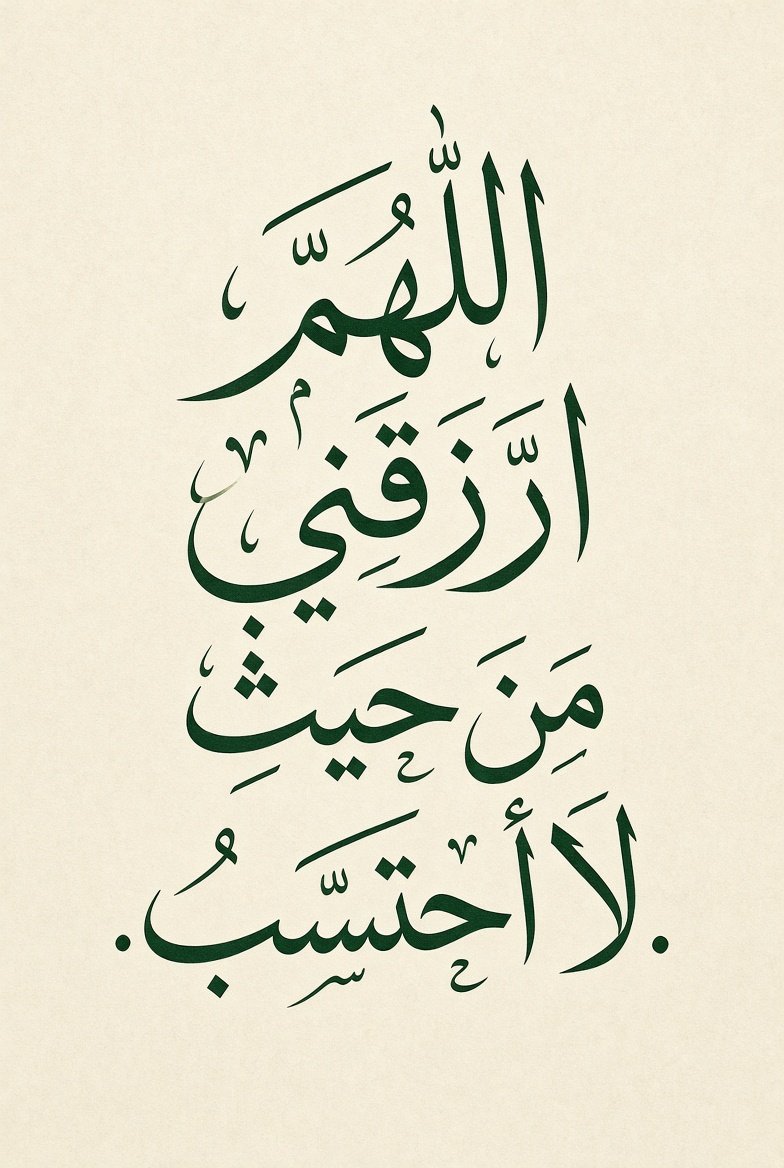 اللّٰهُمَّ
ارَّزَقَنِي
مِنَ حَيثِ
لَا أحتسَّبُ